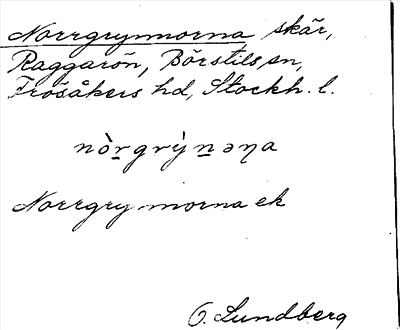 Norrgrynnorna skär,
Raggarön, Börstils sn,
Frösåkers hd, Stockh. l.
nòrgrỳnəna
Norrgry-norna ek
O. Lundberg